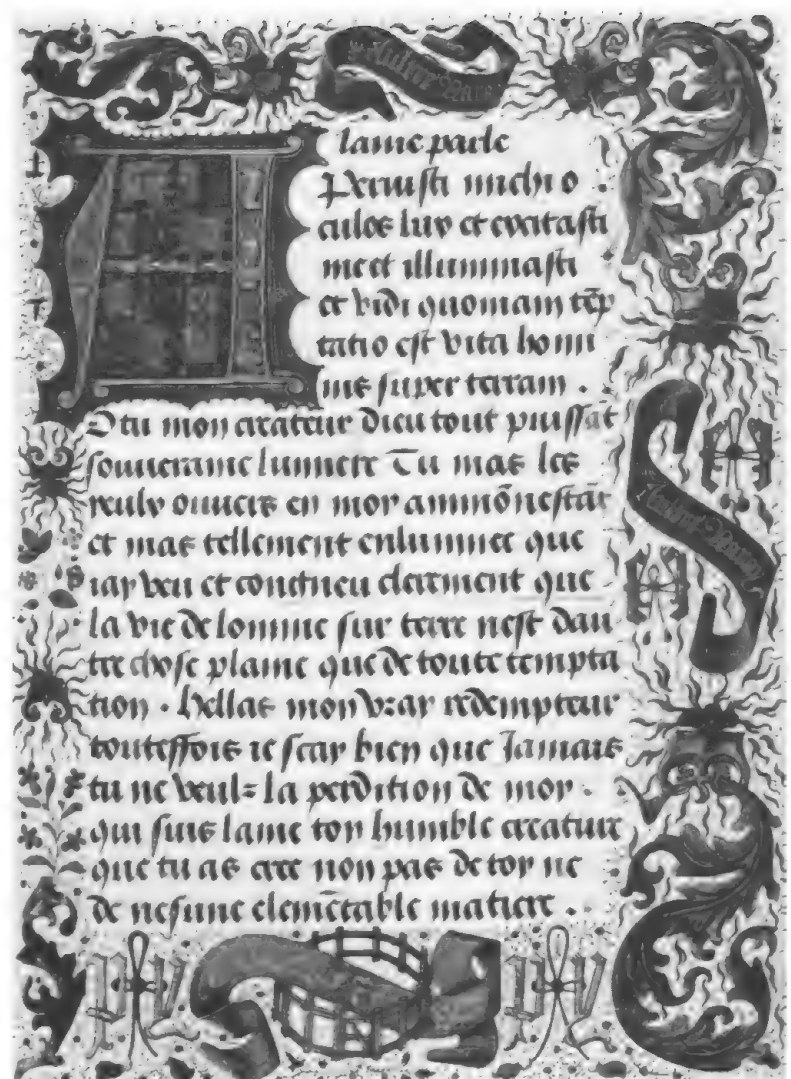 Aultre Naray
lame parle
APeruisti michi o
culos lux et excitasti
me et illuminasti
et vidi quoniam tēp
tatio est vita homi
nis super terram .
O tu mon createur dieu tout puissāt
souueraine lumiere Tu mas les
yeulx ouuers en moy ammōnestāt
et mas tellement enlumine que
iay veu et congneu clerement que
la vie de lomme sur terre nest dau
tre chose plaine que de toute tempta
tion . hellas mon vray redempteur
touteffois ie scay bien que Jamais
tu ne veulz la perdition de moy .
qui suis lame ton humble creature
que tu as cree non pas de toy ne
de nesune elemētable matiere .
Aultre Naray
PV PV